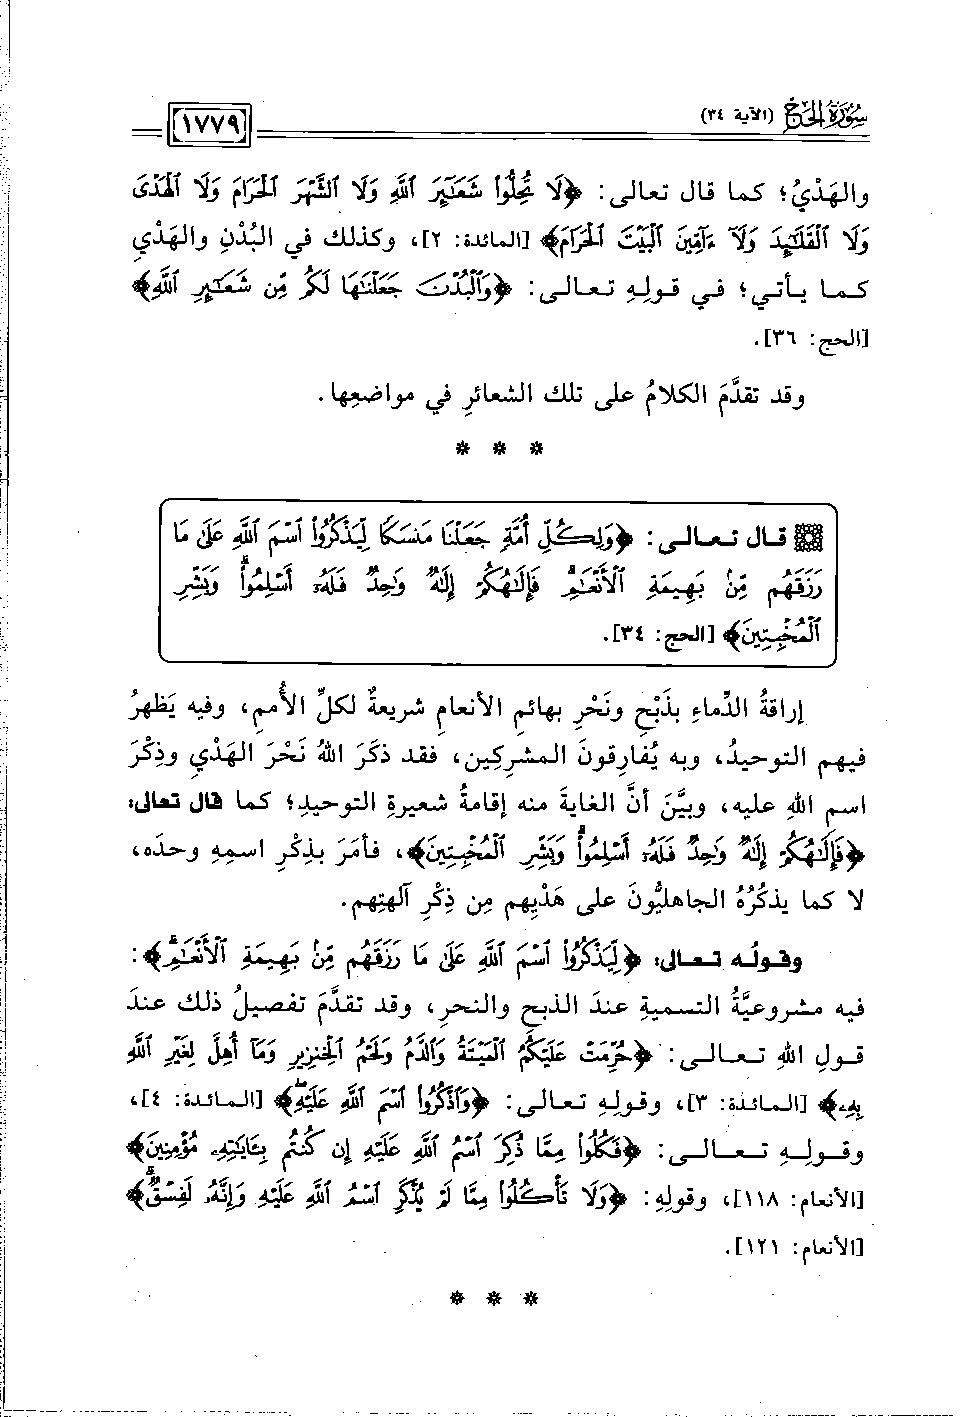 سُورَةُ الحَجِّ (الآية ٣٤)
١٧٧٩
والهَدْيُ؛ كما قال تعالى: ﴿لَا تُحِلُّوا۟ شَعَٰٓئِرَ ٱللَّهِ وَلَا ٱلشَّهْرَ ٱلْحَرَامَ وَلَا ٱلْهَدْىَ
وَلَا ٱلْقَلَٰٓئِدَ وَلَآ ءَآمِّينَ ٱلْبَيْتَ ٱلْحَرَامَ﴾ [المائدة: ٢]، وكذلك في البُدْنِ والهَدْيِ
كما يأتي؛ في قولِهِ تعالى: ﴿وَٱلْبُدْنَ جَعَلْنَٰهَا لَكُم مِّن شَعَٰٓئِرِ ٱللَّهِ﴾
[الحج: ٣٦].
وقد تقدَّمَ الكلامُ على تلك الشعائرِ في مواضعِها.
* * *
قال تعالى: ﴿وَلِكُلِّ أُمَّةٍ جَعَلْنَا مَنسَكًا لِّيَذْكُرُوا۟ ٱسْمَ ٱللَّهِ عَلَىٰ مَا
رَزَقَهُم مِّنۢ بَهِيمَةِ ٱلْأَنْعَٰمِ ۗ فَإِلَٰهُكُمْ إِلَٰهٌ وَٰحِدٌ فَلَهُۥٓ أَسْلِمُوا۟ ۗ وَبَشِّرِ
ٱلْمُخْبِتِينَ﴾ [الحج: ٣٤].
إراقةُ الدِّماءِ بذَبْحِ ونَحْرِ بهائمِ الأنعامِ شريعةٌ لكلِّ الأُممِ، وفيه يَظهرُ
فيهم التوحيدُ، وبه يُفارِقونَ المشرِكِينَ، فقد ذكَرَ اللهُ نَحْرَ الهَدْيِ وذِكْرَ
اسمِ اللهِ عليه، وبيَّنَ أنَّ الغايةَ منه إقامةُ شعيرةِ التوحيدِ؛ كما قال تعالى:
﴿فَإِلَٰهُكُمْ إِلَٰهٌ وَٰحِدٌ فَلَهُۥٓ أَسْلِمُوا۟ ۗ وَبَشِّرِ ٱلْمُخْبِتِينَ﴾، فأمَرَ بذِكْرِ اسمِهِ وحدَه،
لا كما يذكُرُهُ الجاهليُّونَ على هَدْيِهم مِن ذِكْرِ آلهتِهم.
وقولُه تعالى: ﴿لِّيَذْكُرُوا۟ ٱسْمَ ٱللَّهِ عَلَىٰ مَا رَزَقَهُم مِّنۢ بَهِيمَةِ ٱلْأَنْعَٰمِ ۗ﴾:
فيه مشروعيَّةُ التسميةِ عندَ الذبحِ والنحرِ، وقد تقدَّمَ تفصيلُ ذلك عندَ
قولِ اللهِ تعالى: ﴿حُرِّمَتْ عَلَيْكُمُ ٱلْمَيْتَةُ وَٱلدَّمُ وَلَحْمُ ٱلْخِنزِيرِ وَمَآ أُهِلَّ لِغَيْرِ ٱللَّهِ
بِهِۦ﴾ [المائدة: ٣]، وقولِهِ تعالى: ﴿وَٱذْكُرُوا۟ ٱسْمَ ٱللَّهِ عَلَيْهِ ۖ﴾ [المائدة: ٤]،
وقولِهِ تعالى: ﴿فَكُلُوا۟ مِمَّا ذُكِرَ ٱسْمُ ٱللَّهِ عَلَيْهِ إِن كُنتُم بِـَٔايَٰتِهِۦ مُؤْمِنِينَ﴾
[الأنعام: ١١٨]، وقولِهِ: ﴿وَلَا تَأْكُلُوا۟ مِمَّا لَمْ يُذْكَرِ ٱسْمُ ٱللَّهِ عَلَيْهِ وَإِنَّهُۥ لَفِسْقٌ ۗ﴾
[الأنعام: ١٢١].
* * *